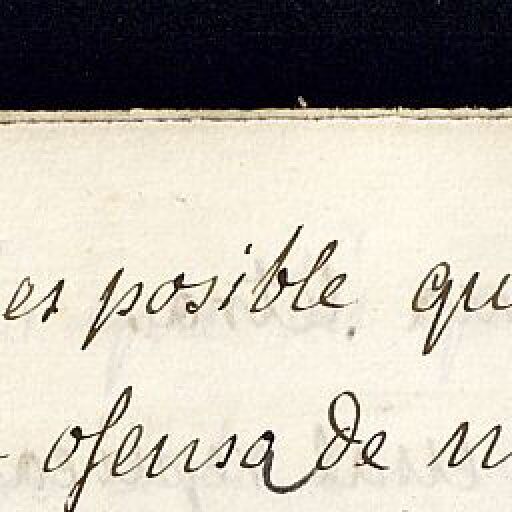 es posible qu
ofensa de